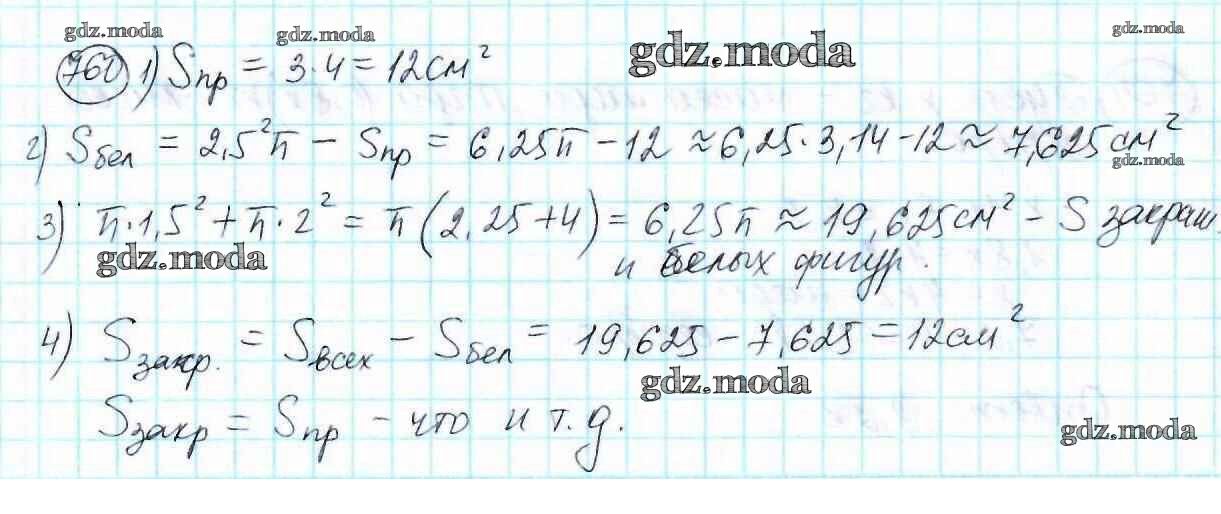 gdz.moda gdz.moda gdz.moda gdz.moda
760 1) Sпр = 3·4 = 12 см²
2) Sбел = 2,5²π − Sпр = 6,25π − 12 ≈ 6,25·3,14 − 12 ≈ 7,625 см²
gdz.moda
3) π·1,5² + π·2² = π(2,25+4) = 6,25π ≈ 19,625 см² − S закраш.
gdz.moda
и белых фигур.
4) Sзакр. = Sвсех − Sбел = 19,625 − 7,625 = 12 см²
gdz.moda
Sзакр = Sпр − что и т.д.
gdz.moda